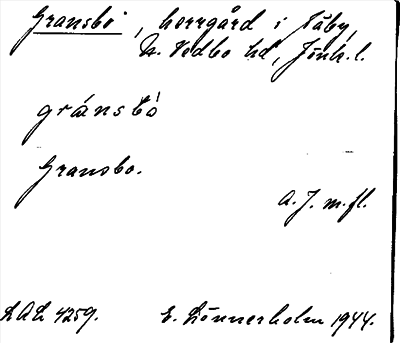 Gransbo, herrgård i Säby,
N. Vedbo hd, Jönk. l.
gránsbò
Gransbo.
A. J. m. fl.
LAL 4259. E. Lönnerholm 1944.